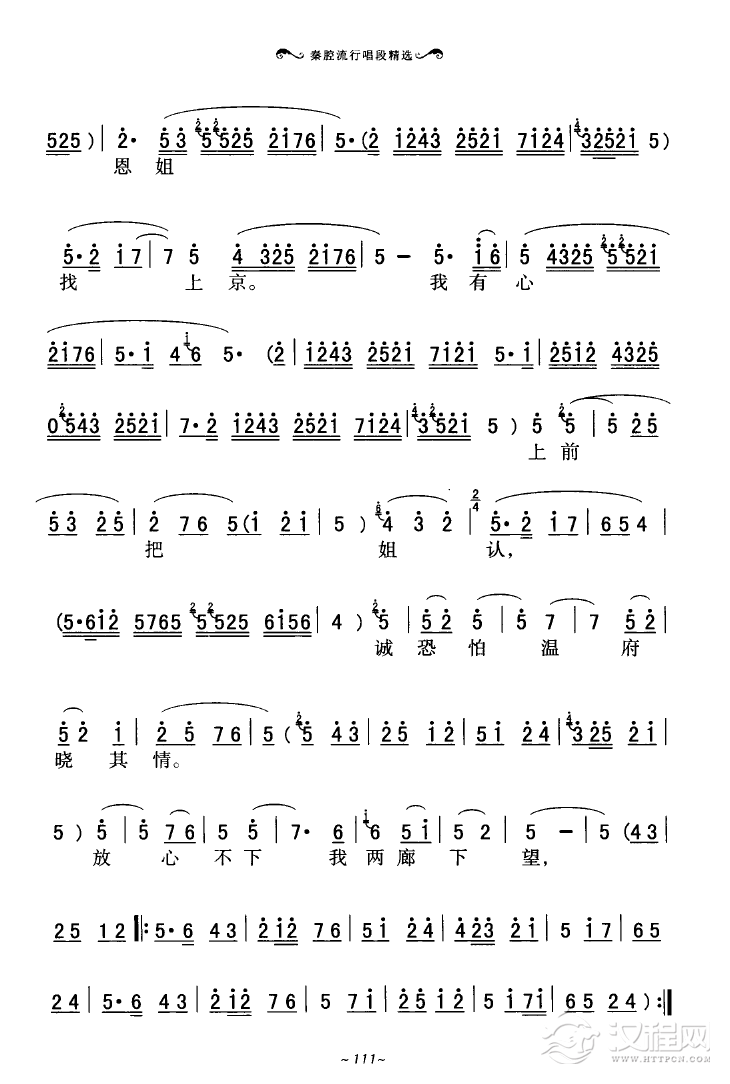 秦腔流行唱段精选
525) | 2· 53 5525 2176 | 5·(2 1243 2521 7124 | 32521 5)
恩 姐
5·2 17 | 7 5 4 325 2176 | 5 - 5· i6 | 5 4325 5521
找 上 京。 我 有 心
2176 | 5·i 46 5· (2 | 1243 2521 7121 5·i | 2512 4325
0543 2521 | 7·2 1243 2521 7124 | 3521 5) 5 5 | 5 25
上 前
53 25 | 2 76 5(i 2i | 5) 4 3 2 | 2/4 5·2 17 | 654 |
把 姐 认,
(5·612 5765 5525 6156 | 4) 5 | 52 5 | 5 7 | 7 52 |
诚 恐 怕 温 府
52 i | 25 76 | 5 ( 5 3 | 2 i 2 4 | 5 i 2 4 | 325 2i |
晓 其 情。
5) 5 | 5 76 | 5 5 | 7· 6 | 6 5i | 5 2 | 5 - | 5 (43 |
放 心 不 下 我 两 廊 下 望,
25 12 ‖: 5·6 43 | 212 76 | 2i 24 | 423 2i | 5 i7 | 65
24 | 5·6 43 | 212 76 | 5 i 65 | 4 5 | 2 i7i | 65 24) :‖
~111~
汉程网
WWW.HTTPCN.COM